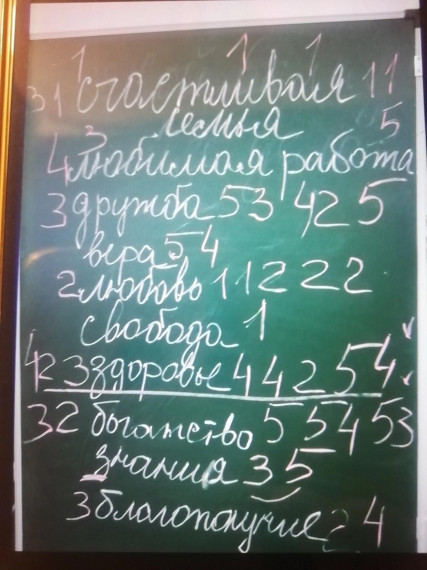 1 1 1
31 счастливая 11
3 семья 5
4 любимая работа
3 дружба 53 425
вера 54
2 любовь 11222
свобода 1
423 здоровье 44254
32 богатство 55453
знания 35
3 благополучие 24